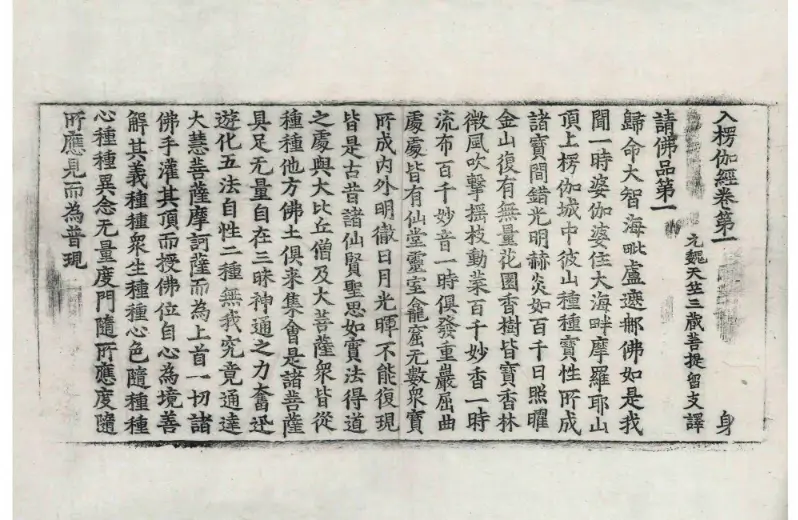 入楞伽經卷第一 身
元魏天竺三藏菩提留支譯
請佛品第一
歸命大智海毗盧遮那佛如是我
聞一時婆伽婆住大海畔摩羅耶山
頂上楞伽城中彼山種種寶性所成
諸寶間錯光明赫炎如百千日照曜
金山復有無量花園香樹皆寶香林
微風吹擊搖枝動葉百千妙香一時
流布百千妙音一時俱發重巖屈曲
處處皆有仙堂靈室龕窟无數衆寶
所成內外明徹日月光暉不能復現
皆是古昔諸仙賢聖思如實法得道
之處與大比丘僧及大菩薩衆皆從
種種他方佛土俱来集會是諸菩薩
具足无量自在三昧神通之力奮迅
遊化五法自性二種無我究竟通達
大慧菩薩摩訶薩而為上首一切諸
佛手灌其頂而授佛位自心為境善
解其義種種衆生種種心色隨種種
心種種異念无量度門隨所應度隨
所應見而為普現